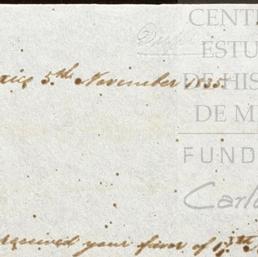 CENT
ESTU
DE HIS
DE M
FUND
Carl
5.th November 1835
received your favor of 17.th